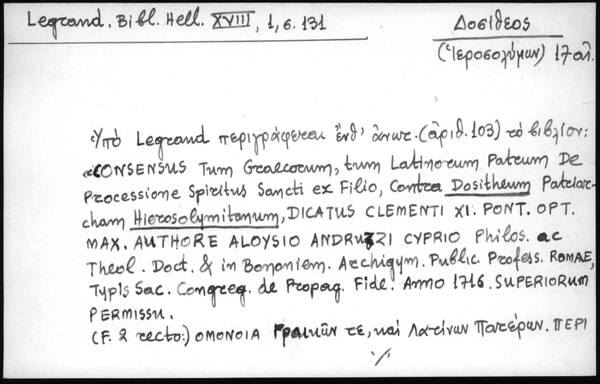 Legrand. Bibl. Hell. XVIII, 1, σ. 131
Δοσίθεος
(Ἱεροσολύμων) 17 αἰ.
Ὑπό Legrand περιγράφεται ἔνθ' ἀνωτ. (ἀριθ. 103) τό βιβλίον:
«CONSENSUS Tum Graecorum, tum Latinorum Patrum De
Processione Spiritus Sancti ex Filio, Contra Dositheum Patriar-
cham Hierosolymitanum, DICATUS CLEMENTI XI. PONT. OPT.
MAX. AUTHORE ALOYSIO ANDRUZZI CYPRIO Philos. ac
Theol. Doct. & in Bononiem. Archigym. Public. Profess. ROMAE,
Typis Sac. Congreg. de Propag. Fide. Anno 1716. SUPERIORUM
PERMISSU.
(F. 2 recto:) ΟΜΟΝΟΙΑ Γραικῶν τε, καί Λατίνων Πατέρων. ΠΕΡΙ
./.